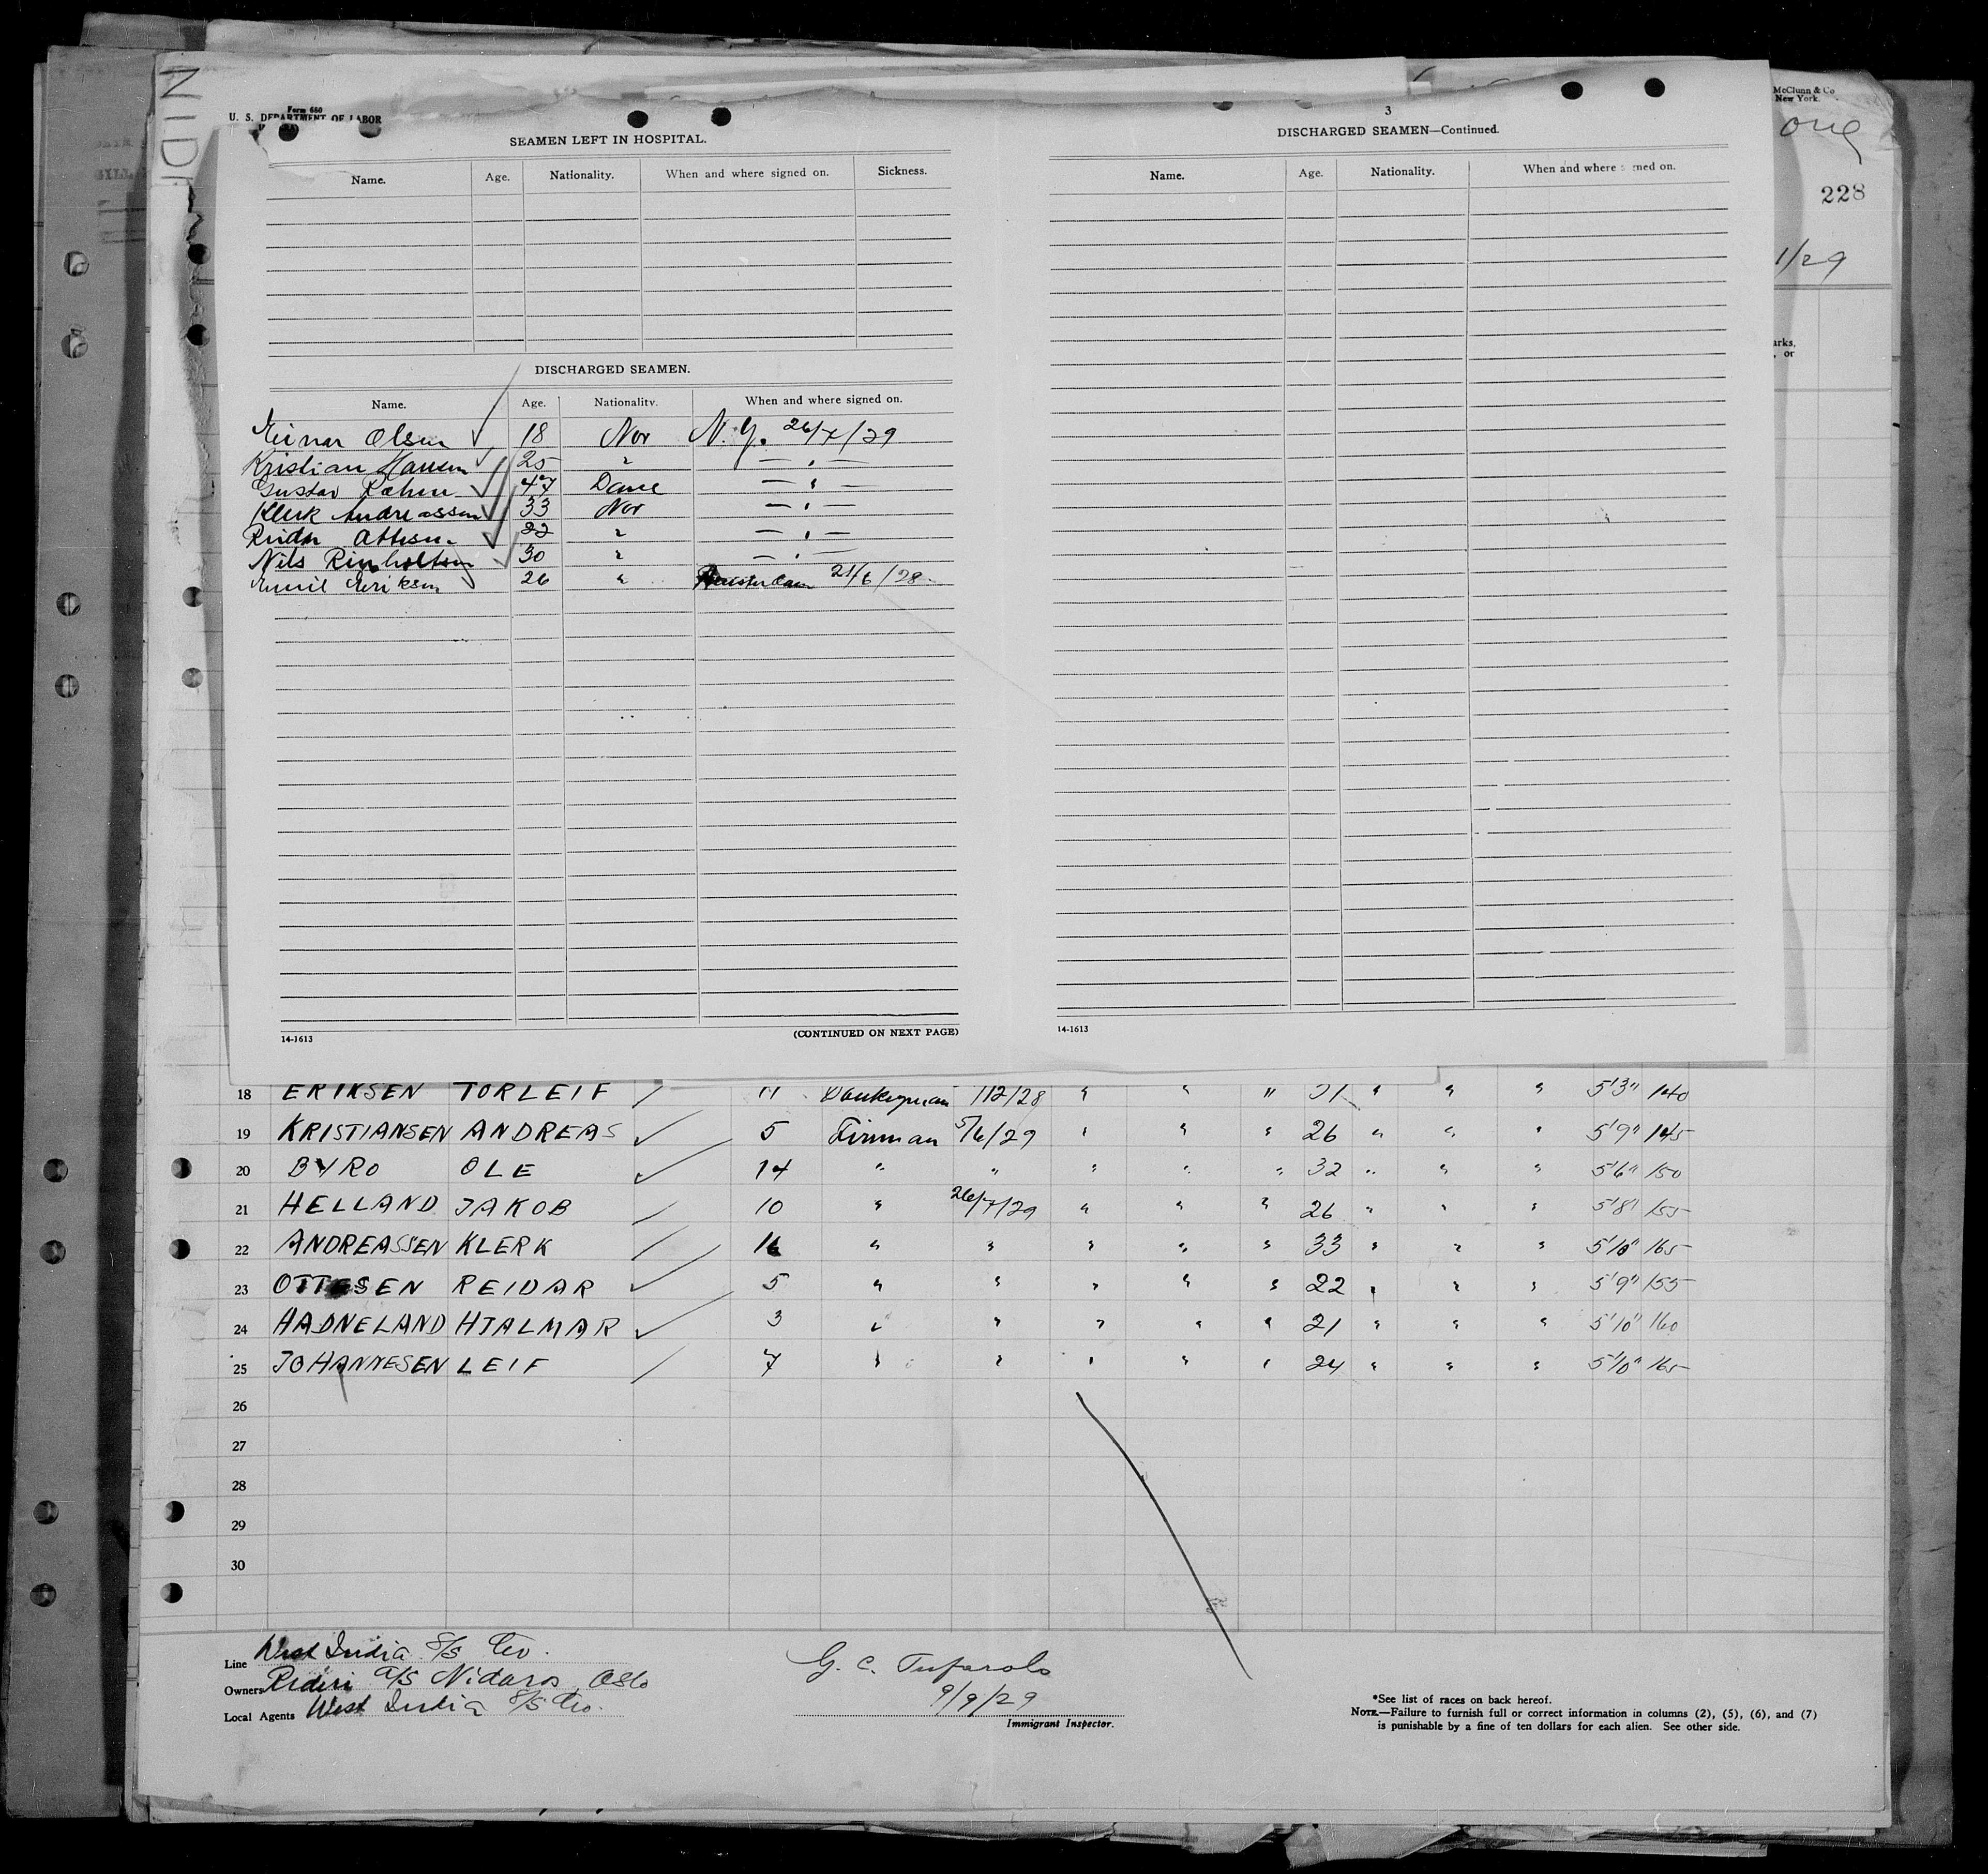 McClunn & Co
New York.
orig
228
1/29
arks,
, or
Form 680
U. S. DEPARTMENT OF LABOR
SEAMEN LEFT IN HOSPITAL.
Name. Age. Nationality. When and where signed on. Sickness.
DISCHARGED SEAMEN.
Name. Age. Nationality. When and where signed on.
Einar Olsen 18 Nor N.Y. 26/7/29
Kristian Hansen 25 " — " —
Gustav 47 Dane — " —
Klerk Andreassen 33 Nor — " —
Reidar Ottesen 22 " — " —
Nils 30 " — " —
Emil Eriksen 26 " Amsterdam 21/6/28
14-1613 (CONTINUED ON NEXT PAGE)
3
DISCHARGED SEAMEN—Continued.
Name. Age. Nationality. When and where signed on.
14-1613
18 ERIKSEN TORLEIF 11 Donkeyman 1/12/28 " " " 31 " " " 5'3" 140
19 KRISTIANSEN ANDREAS 5 Fireman 5/6/29 " " " 26 " " " 5'9" 145
20 BYRO OLE 14 " " " " " 32 " " " 5'6" 150
21 HELLAND JAKOB 10 " 26/7/29 " " " 26 " " " 5'8" 155
22 ANDREASSEN KLERK 16 " " " " " 33 " " " 5'10" 165
23 OTTESEN REIDAR 5 " " " " " 22 " " " 5'9" 155
24 HADNELAND HJALMAR 3 " " " " " 21 " " " 5'10" 160
25 JOHANNESEN LEIF 7 " " " " " 24 " " " 5'10" 165
26
27
28
29
30
Line West India S/S Co.
Owners Rederi A/S Nidaros, Oslo
Local Agents West India S/S Co.
G. C. Tufarolo
9/9/29
Immigrant Inspector.
*See list of races on back hereof.
NOTE.—Failure to furnish full or correct information in columns (2), (5), (6), and (7)
is punishable by a fine of ten dollars for each alien. See other side.